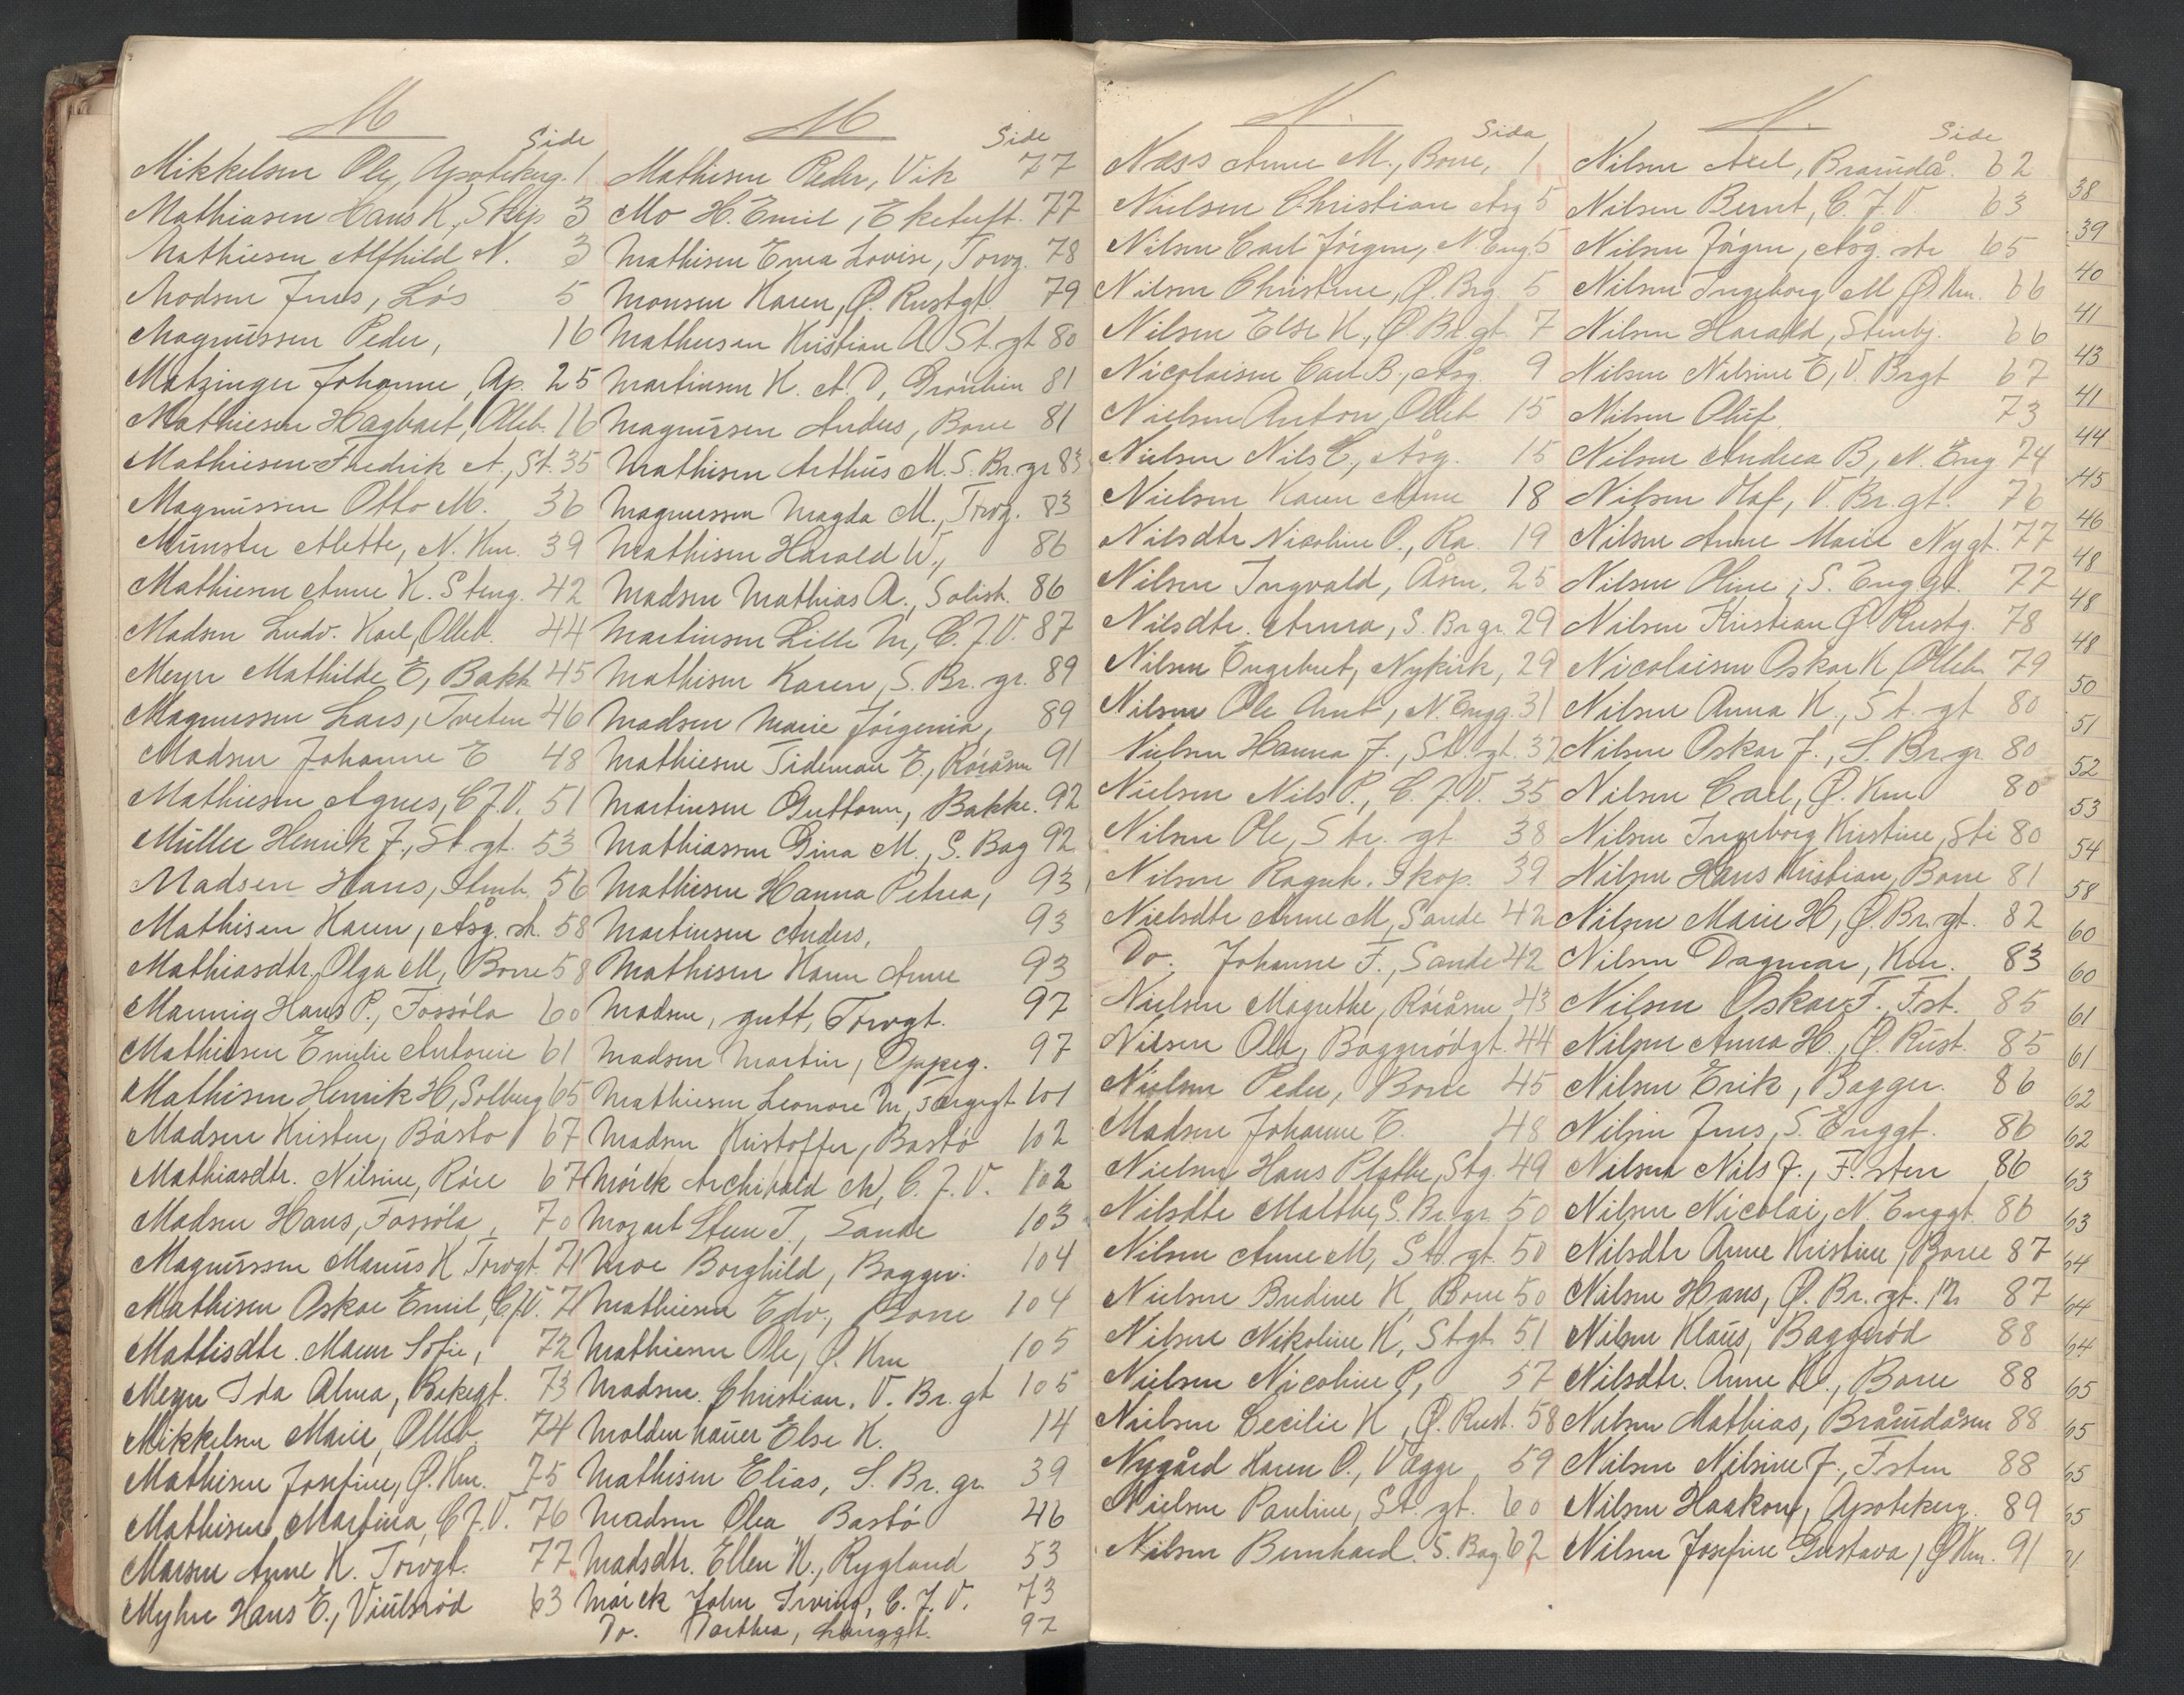 M
Side
Mikkelsen Ole, Apotekerg. 1
Mathiasen Hans K., Skip. 3
Mathiesen Alfhild N. 3
Madsen Jens, Lös 5
Magnussen Peder, 16
Matzinger Johanne, Ap. 25
Mathiesen Hagbart, Olleb. 16
Mathiesen Fredrik A., St. 35
Magnussen Otto M. 36
Münster Alette, N. Km. 39
Mathiesen Anne K. Steng. 42
Madsen Ludv. Karl, Olleb. 44
Meyer Mathilde E, Bakk 45
Magnussen Lars, Tveten 46
Madsen Johanne E 48
Mathiesen Agnes, C.J.V. 51
Müller Henrik J., St. gt. 53
Madsen Hans, Stenb. 56
Mathisen Karen, Åsg. str. 58
Mathiasdtr. Olga M, Borre 58
Mannig Hans P., Fossöla 60
Mathisen Emilie Antonie 61
Mathisen Henrik H, Solberg 65
Madsen Kristen, Båstö 67
Mathiasdtr. Nilsine, Röre 67
Madsen Hans, Fossöla, 70
Magnussen Marius K Torvgt. 71
Mathisen Oskar Emil, C.J.V. 71
Mattisdtr. Maren Sofie, 72
Meyer Ida Alma, Bakegt. 73
Mikkelsen Marie, Olleb. 74
Mathisen Josefine, Ö. Km. 75
Mathisen Martina, C.J.V. 76
Marsen Anne K. Torvgt. 77
Myhre Hans E., Viulsröd 63
M
Side
Mathisen Peder, Vik 77
Mo H. Emil, Eketuft. 77
Mathisen Erna Lovise, Torvg. 78
Monsen Karen, Ö. Rustgt. 79
Matheusen Kristian A St. gt 80
Martinsen K. A. D, Grönlien 81
Magnussen Anders, Borre 81
Mathisen Arthur M. S. Br. gr 83
Magnussen Magda M., Torvg. 83
Mathisen Harald W., 86
Madsen Mathias A., Solist. 86
Martinsen Lille M, C.J.V. 87
Mathisen Karen, S. Br. gr. 89
Madsen Marie Jörgenia, 89
Mathiesen Tideman E., Röråsen 91
Martinsen Guttorm, Bakke. 92
Mathiassen Gina M., S. Bag 92
Mathisen Hanna Petrea, 93
Martinsen Anders, 93
Mathisen Karen Anne 93
Madsen, gutt, Torvgt. 97
Madsen Martin, Oppeg. 97
Mathiesen Leonore M, Torgegt 101
Madsen Kristoffer, Bastö 102
Mörck Archibald M, C.J.V. 102
Mozart Steen T., Sande 103
Moe Borghild, Bagger. 104
Mathisen Edv., Borre 104
Mathiesen Ole, Ö. Km 105
Madsen Christian, V. Br. gt 105
Moldenhauer Else K. 14
Mathisen Elias, S. Br. gr. 39
Madsen Olea Bastö 46
Madsdtr. Ellen K., Rygland 53
Mörck John Irving, C.J.V. 73
Do. Dorthea, Langgt. 97
N.
Sida
Næss Anne M., Borre, 1
Nielsen Christian Åsg 5
Nilsen Carl Jörgen, N. Eng. 5
Nilsen Christine, Ö. Brg. 5
Nilsen Else K., Ö Br. gt. 7
Nicolaisen Carl B., Åsg. 9
Nielsen Anton, Olleb. 15
Nielsen Nils C., Åsg. 15
Nielsen Karen Anne 18
Nilsdtr Nicoline O., Ra 19
Nilsen Ingvald, Åsen. 25
Nilsdtr. Anna, S. Br gr. 29
Nilsen Engebret, Nykirk, 29
Nilsen Ole Amt, N. Engg. 31
Nielsen Hanna J., St. gt. 32
Nielsen Nils P., C.J.V. 35
Nilsen Ole, Str. gt. 38
Nilsen Ragnh. Skop. 39
Nielsdtr Anne M, Sande 42
Do. Johanne F., Sande 42
Nielsen Magrethe, Röråsen 43
Nilsen Ole, Baggerödgt. 44
Nielsen Peder, Borre 45
Madsen Johanne E. 48
Nielsen Hans Pløthe, Stg. 49
Nilsdtr Malthe, S. Br. gr. 50
Nilsen Anne M, Std. gt. 50
Nielsen Berdine K, Borre 50
Nilsen Nikoline K, St gt. 51
Nielsen Nicoline P, 57
Nielsen Cecilie K, Ö. Rust. 58
Nygård Karen O., Vegge 59
Nielsen Pauline, St. gt. 60
Nilsen Bernhard. S. Bag. 62
N.
Side
Nilsen Axel, Bramdå. 62
Nilsen Bernt, C.J.V. 63
Nilsen Jörgen, Åsg. str 65
Nilsen Ingeborg M Ö. Km. 66
Nilsen Harald, Stenbj. 66
Nilsen Nilsine E, V. Brgt 67
Nilsen Oluf 73
Nilsen Andrea B, N. Eng. 74
Nilsen Olaf, V. Br. gt. 76
Nilsen Anne Marie Nygt. 77
Nilsen Oline, S. Enggt. 77
Nilsen Kristian Ö. Rustg. 78
Nicolaisen Oskar K Olleb. 79
Nilsen Anna K., St. gt 80
Nilsen Oskar J., S. Br. gr. 80
Nilsen Carl, Ö. Km. 80
Nilsen Ingeborg Kirstine, St. 80
Nilsen Hans Kristian, Borre 81
Nilsen Marie H, Ö. Br. gt. 82
Nilsen Dagmar, Km. 83
Nilsen Oskar F., F.st. 85
Nilsen Anna H., Ö. Rust. 85
Nilsen Erik, Bagger. 86
Nilsen Jens, S. Enggt. 86
Nilsen Nils J., F. sten 86
Nilsen Nicolai, N. Enggt. 86
Nilsdtr Anne Kristine, Borre 87
Nilsen Hans, Ö. Br. gt. 12 87
Nilsen Klaus, Baggeröd 88
Nilsdtr. Anne K., Borre 88
Nilsen Mathias, Bråmdåsen 88
Nilsen Nilsine J., Fsten 88
Nilsen Haakon, Apotekerg. 89
Nilsen Josefine Gustava, Ö Km. 91
38
39
40
41
43
41
44
45
46
48
48
48
50
51
52
53
54
58
60
60
61
61
62
62
63
63
64
64
64
65
65
65
65